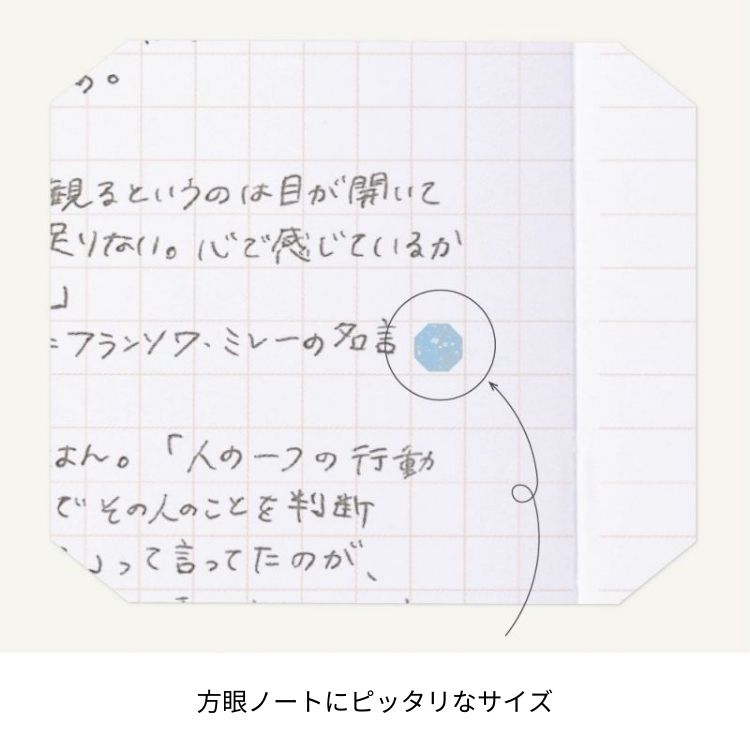 。
観るというのは目が開いて
足りない。心で感じているか
」
=フランソワ・ミレーの名言
ません。「人の一つの行動
でその人のことを判断
」って言ってたのが、
方眼ノートにピッタリなサイズ